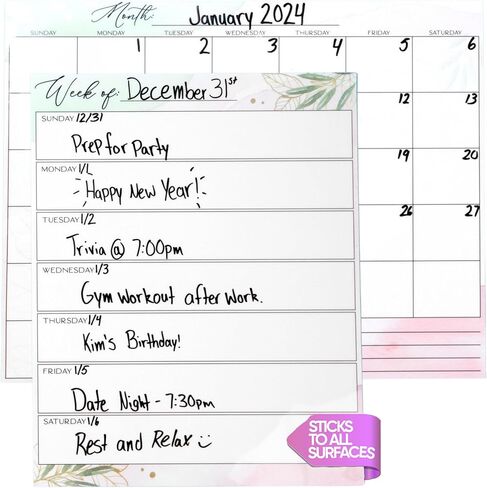 Month: January 2024
SUNDAY MONDAY TUESDAY WEDNESDAY THURSDAY FRIDAY SATURDAY
1 2 3 4 5 6
12 13
19 20
26 27
Week of: December 31st
SUNDAY 12/31
Prep for Party
MONDAY 1/1
Happy New Year!
TUESDAY 1/2
Trivia @ 7:00pm
WEDNESDAY 1/3
Gym Workout after Work.
THURSDAY 1/4
Kim's Birthday!
FRIDAY 1/5
Date Night - 7:30pm
SATURDAY 1/6
Rest and Relax
STICKS
TO ALL
SURFACES